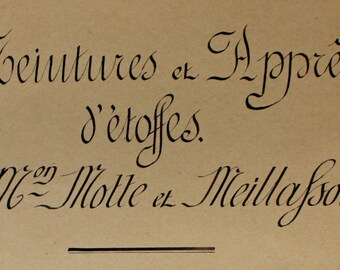 Teintures et Apprê
d'étoffes.
Mon Motte et Meillasso